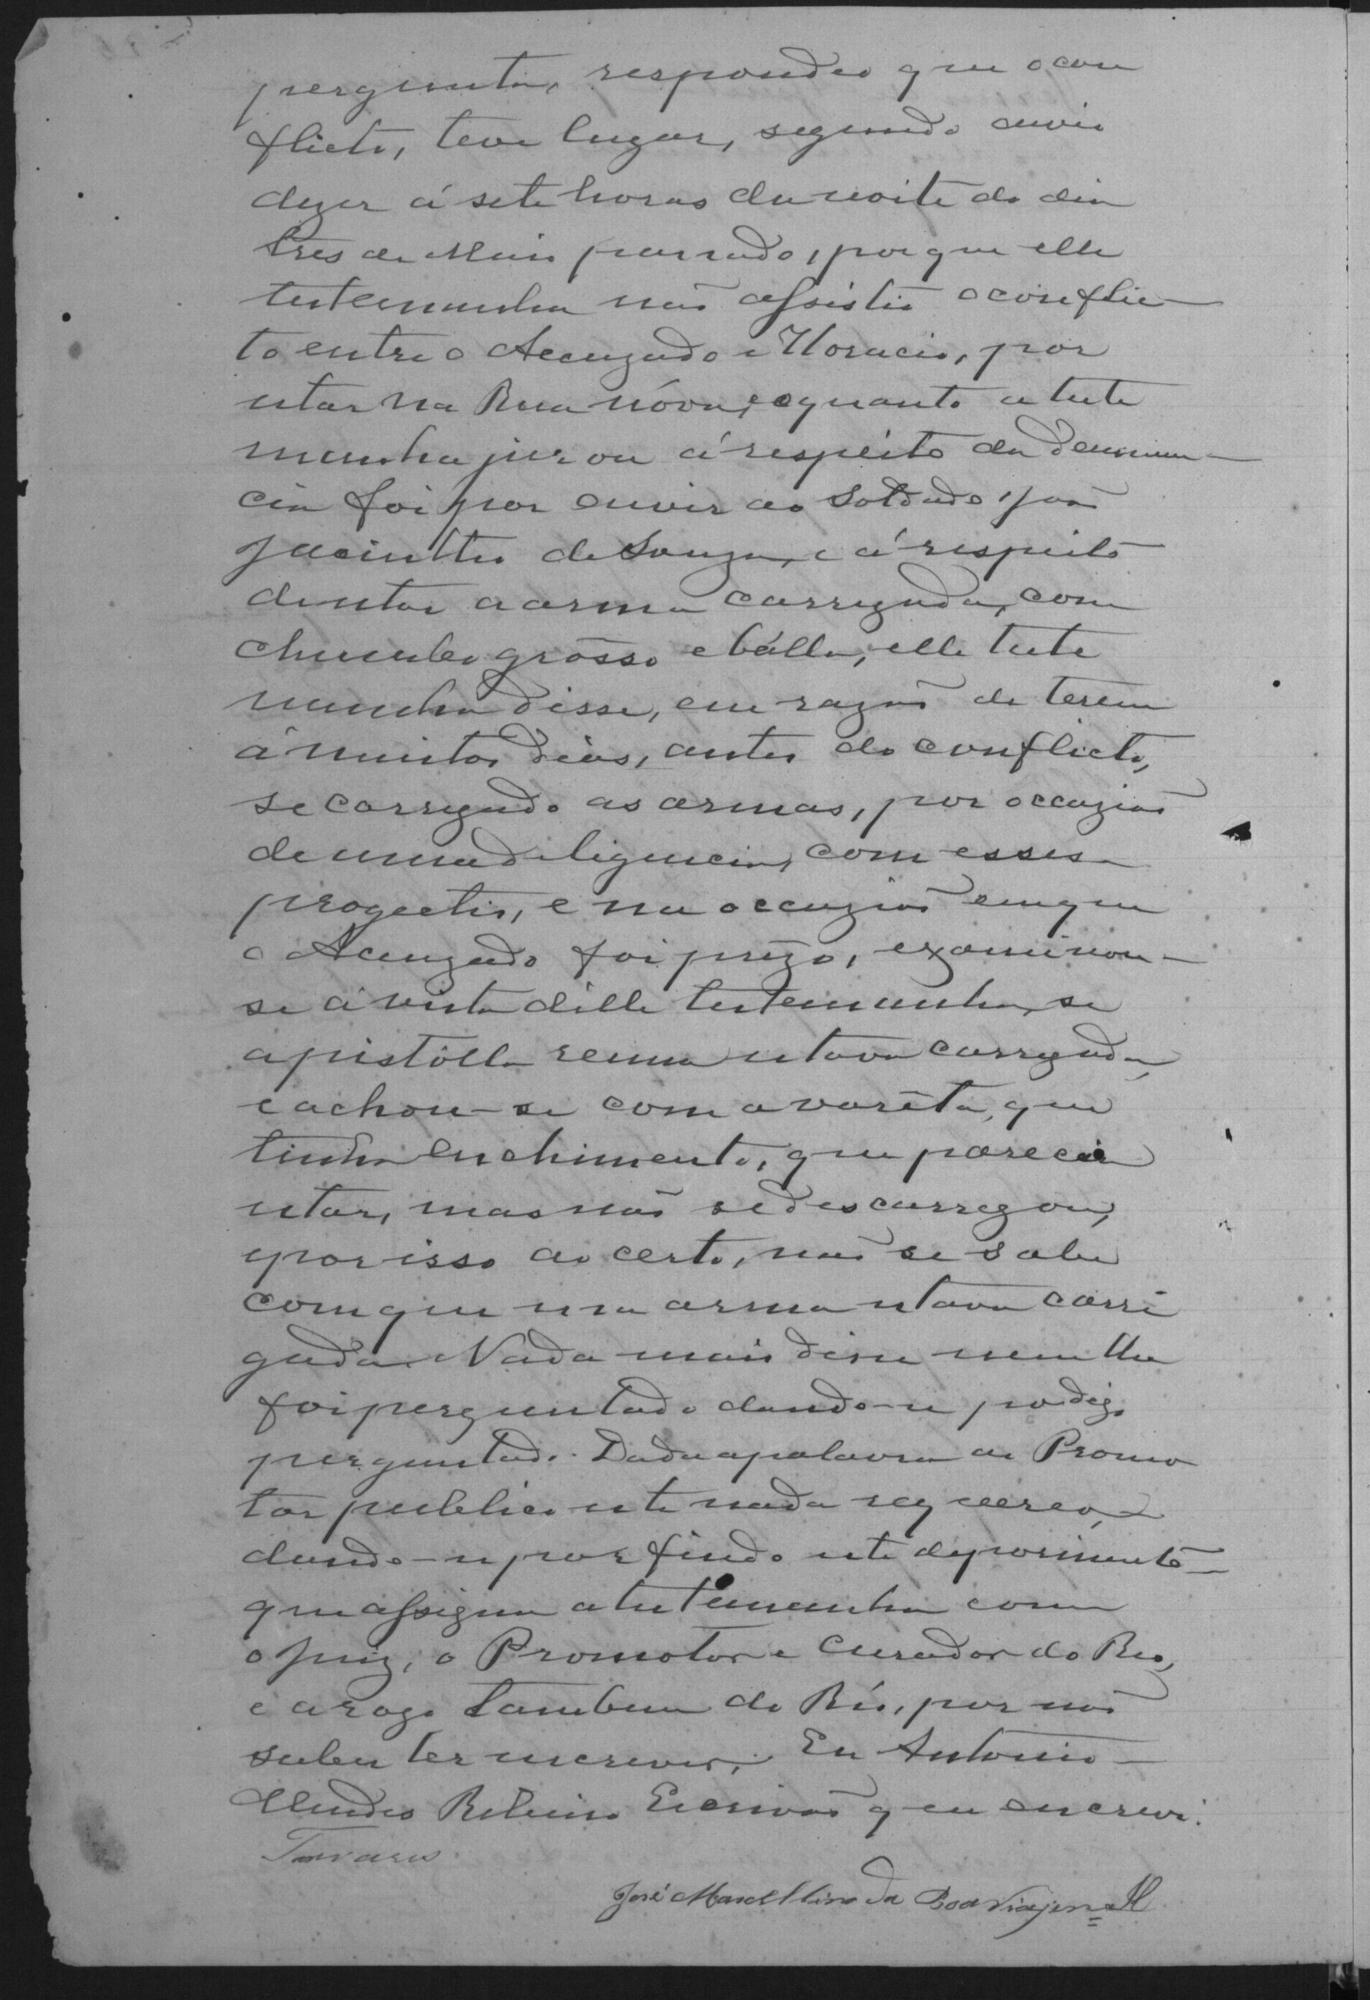 pergunta, respondeo que o con
flicto, teve lugar, segundo ouvio
dizer á sete horas da noite do dia
tres de Maio passado, porque elle
testemunha não assistio o conflic-
to entre o Accuzado e Horacio, por
estar na Rua nóva, e quanto a teste
munha jurou á respeito da denun-
cia foi por ouvir ao Soldado João
Jacintho de Souza, e á respeito
de estar a arma carregada, com
chumbo grosso e bálla, elle teste
munha disse, em razão de terem
á muitos dias, antes do conflicto,
se carregado as armas, por occazião
de uma diligencia, com esses
progectis, e na occazião em que
o Accuzado foi prezo, examinou-
se á vista d'elle testemunha, se
a pistólla reuna estava carregada,
e achou-se com a varêta, que
tinha enchimento, que parecia
estar, mas não se descarregou,
e por isso ao certo, não se sabe
com que essa arma estava carre
gada. Nada mais disse nem lhe
foi perguntado dando-se por digo
perguntado. Dada a palavra ao Promo
tor publico este nada requereo,
dando-se por findo este depoimento
que assigna a testemunha com
o Juiz, o Promotor e Curador do Reo,
e a rogo tambem do Réo, por não
saber ler e escrever. Eu Antonio
Mendes Ribeiro Escrivão que o escrevi.
Tavares
José Marcellino da Boa Viagem